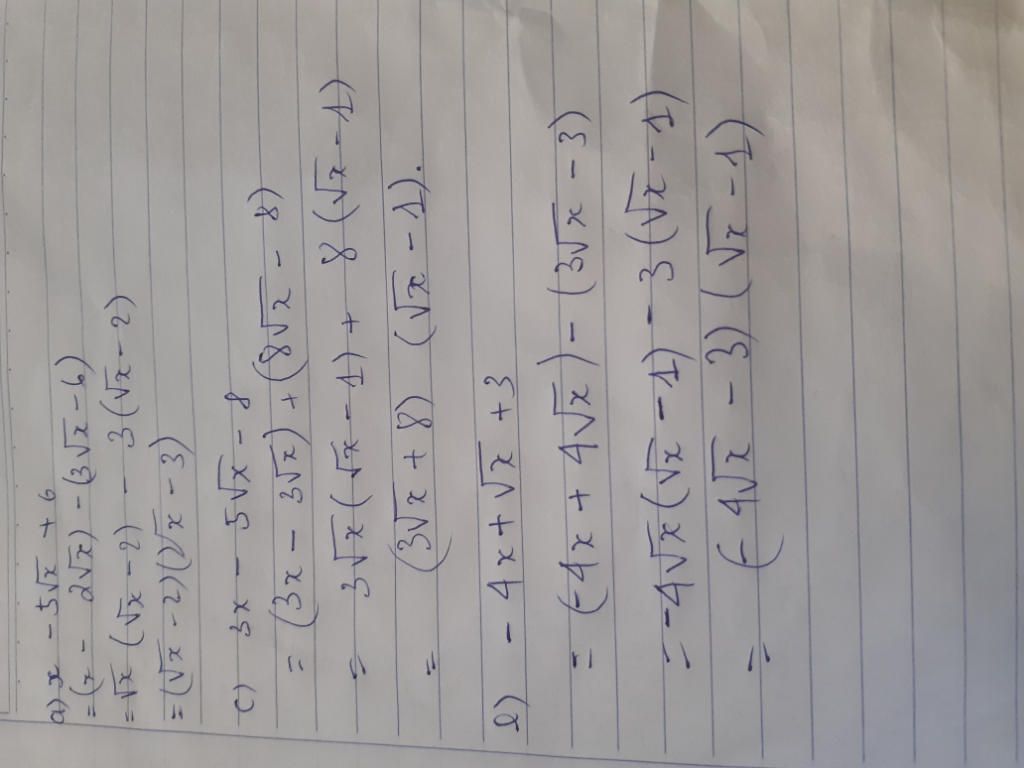 a) x - 5√x + 6
= (x - 2√x) - (3√x - 6)
= √x (√x - 2) - 3 (√x - 2)
= (√x - 2) (√x - 3)
c) 3x - 5√x - 8
= (3x - 3√x) + (8√x - 8)
= 3√x (√x - 1) + 8 (√x - 1)
= (3√x + 8) (√x - 1).
d) - 4x + √x + 3
= (-4x + 4√x) - (3√x - 3)
= -4√x (√x - 1) - 3 (√x - 1)
= (-4√x - 3) (√x - 1)